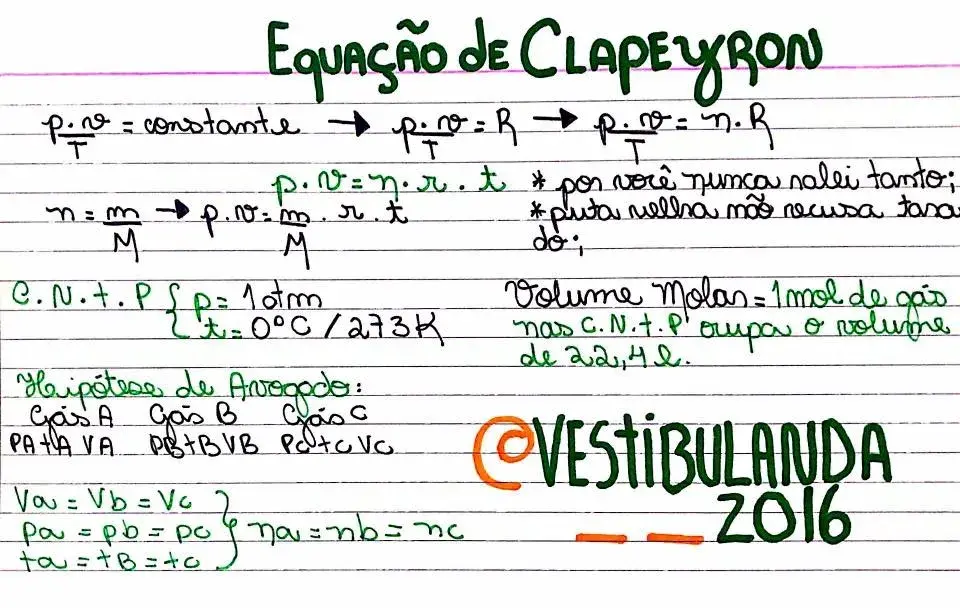 EQUAÇÃO DE CLAPEYRON
p.v/T = constante → p.v/T = R → p.v/T = n.R
p.v = n.r.t
n = m/M → p.v = m/M . r.t
* por você nunca ralei tanto;
* puta velha não recusa tara
do;
C.N.t.P { p = 1 atm
t = 0°C / 273K
Volume Molar = 1 mol de gás
nas C.N.t.P ocupa o volume
de 22,4 l.
Hipótese de Avogado:
Gás A Gás B Gás C
PA tA VA PB tB VB PC tC VC
Va = Vb = Vc
pa = pb = pc } na = nb = nc
ta = tB = tc
@VESTIBULANDA
_ _ 2016